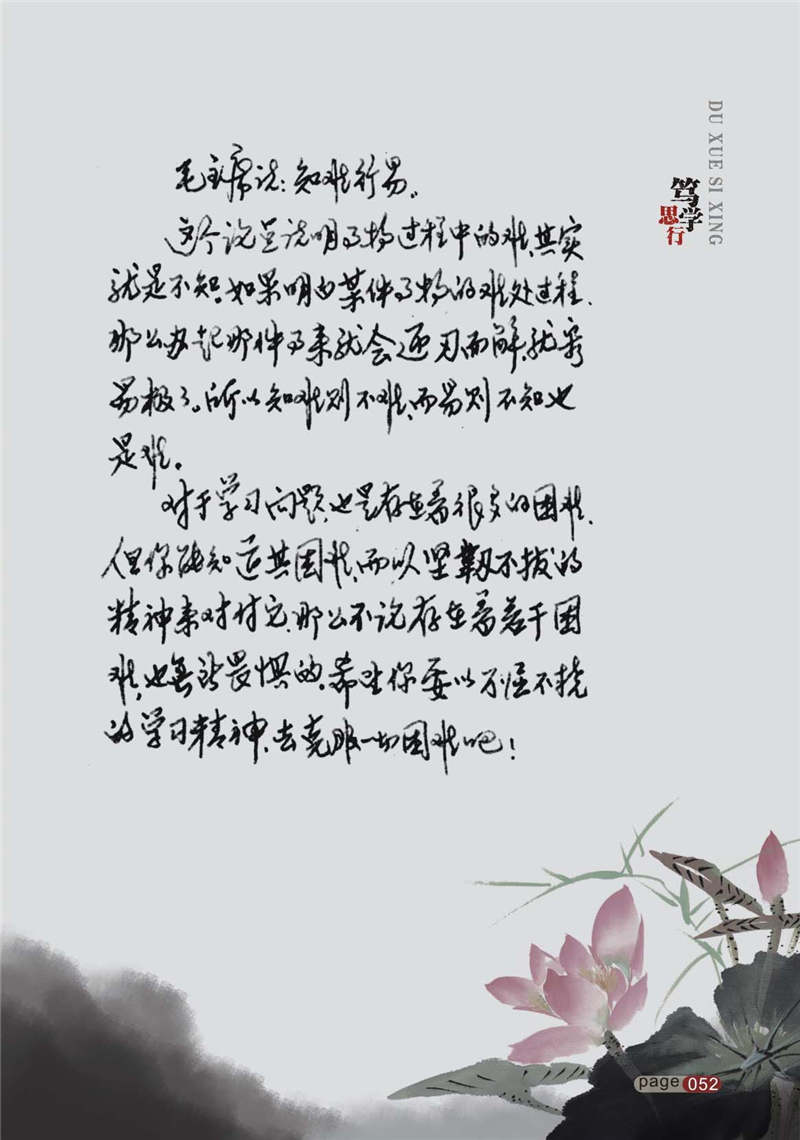 毛主席说：知难行易。
这个说是说明事物过程中的难，其实
就是不知，如果明白某件事物的难处过程，
那么办起那件事来就会迎刃而解，就容
易极了。所以知难则不难，而易则不知也
是难。
对于学习问题，也是存在着很多的困难，
但你能知道其困难，而以坚韧不拔的
精神来对付它，那么不说存在着若干困
难，也无所畏惧的，希望你要以不屈不挠
的学习精神，去克服一切困难吧！
DU XUE SI XING
笃学
思行
page 052